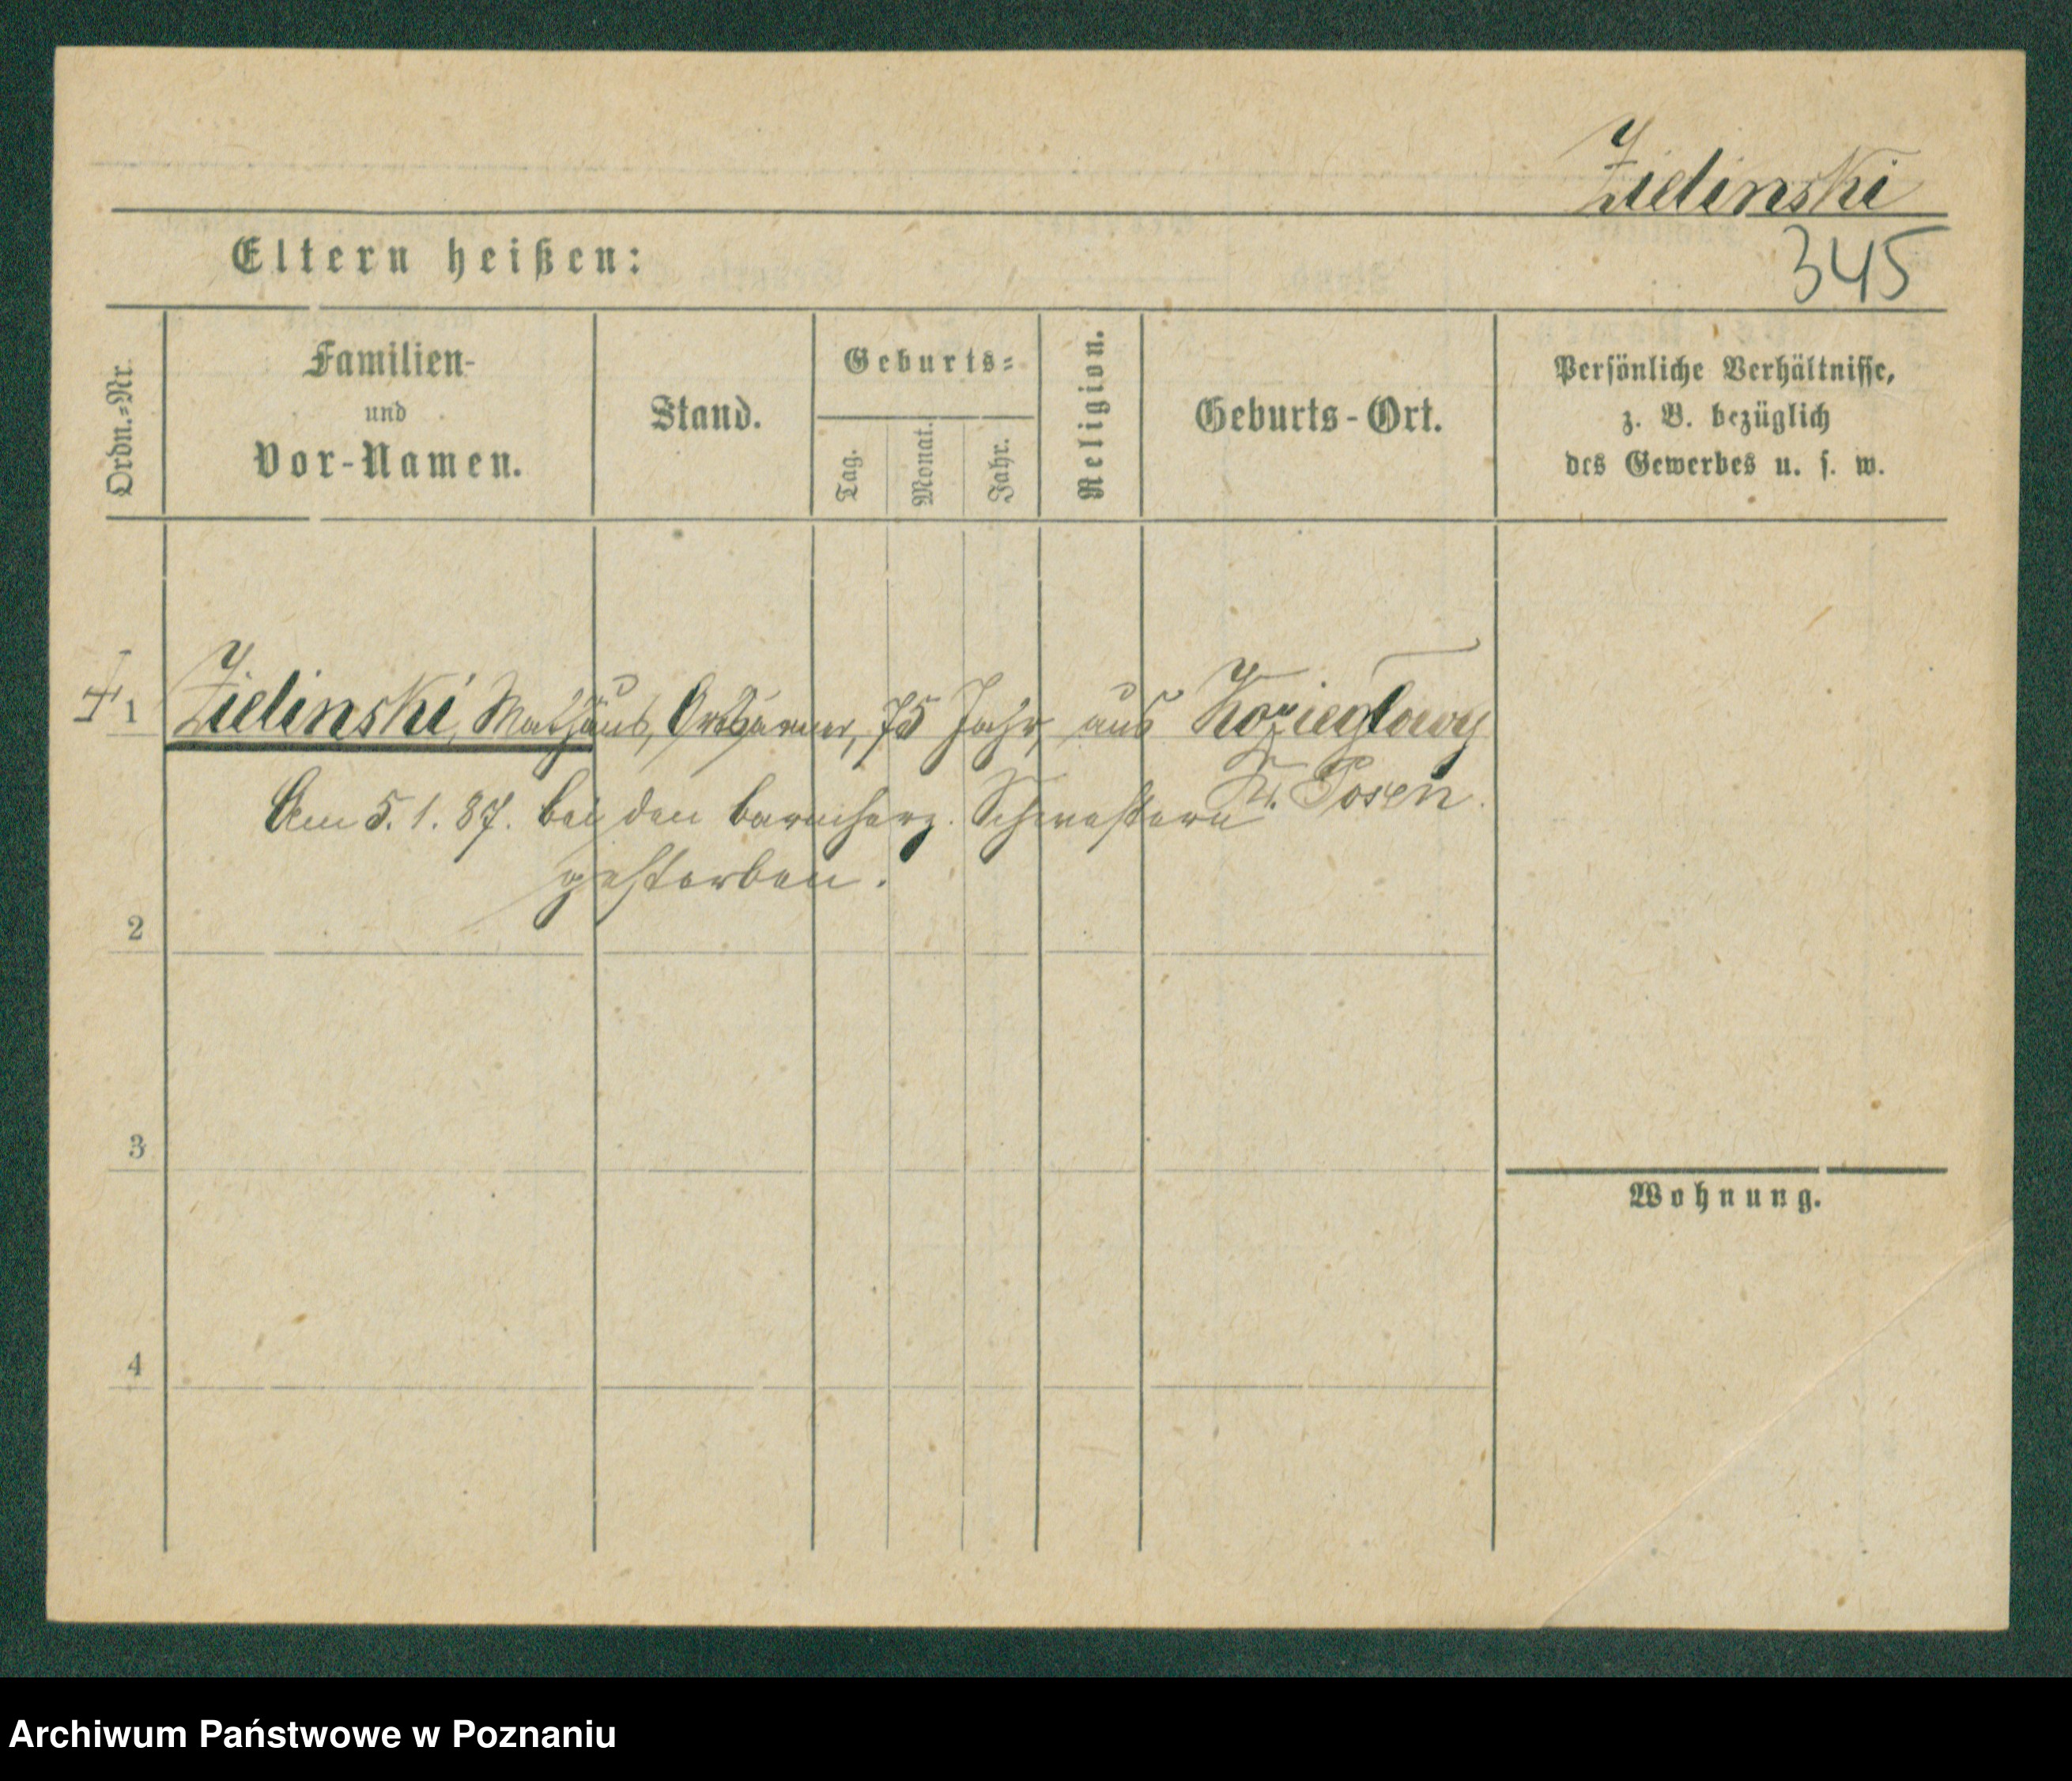 Zielinski
345
Eltern heißen:
Ordn.=Nr.
Familien-
und
Vor-Namen.
Stand.
Geburts=
Tag.
Monat.
Jahr.
Religion.
Geburts-Ort.
Persönliche Verhältnisse,
z. B. bezüglich
des Gewerbes u. s. w.
1 Zielinski, Mathäus, Ortsarmer, 75 Jahr, aus Kozieglowy
Kr. Posen.
Am 5. 1. 87. bei den barmherz. Schwestern
gestorben.
2
3
Wohnung.
4
Archiwum Państwowe w Poznaniu